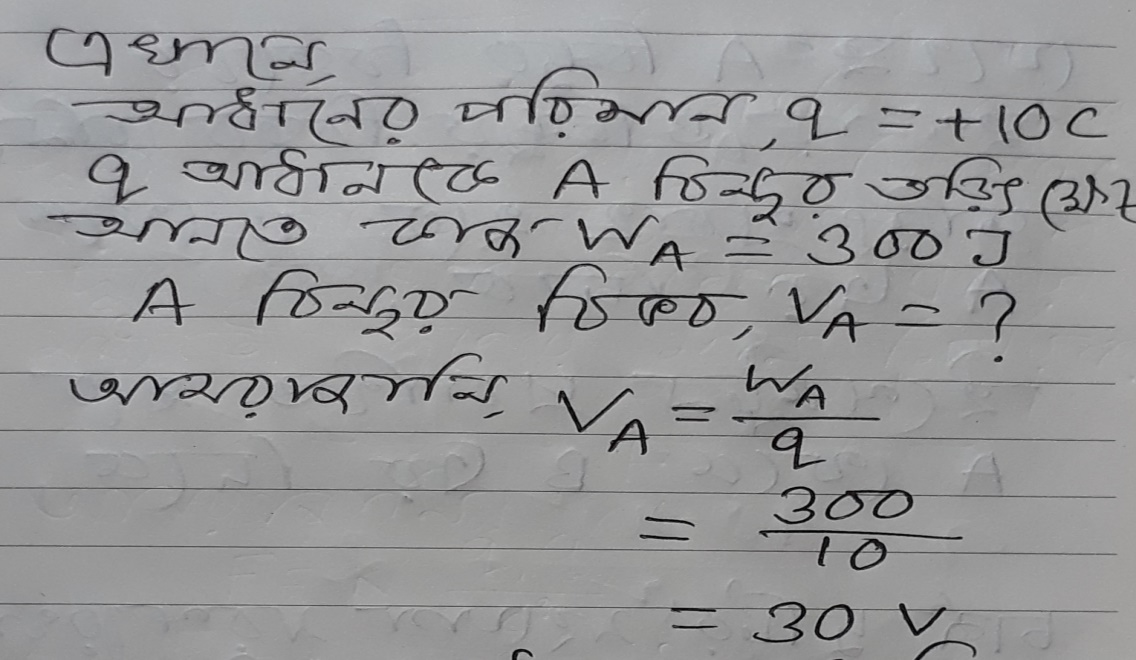 এখানে,
আধানের পরিমান, q = +10 C
q আধানকে A বিন্দুর তড়িৎ ক্ষেত্রে
আনতে কাজ W_A = 300 J
A বিন্দুর বিভব, V_A = ?
আমরা জানি, V_A = W_A / q
= 300 / 10
= 30 V